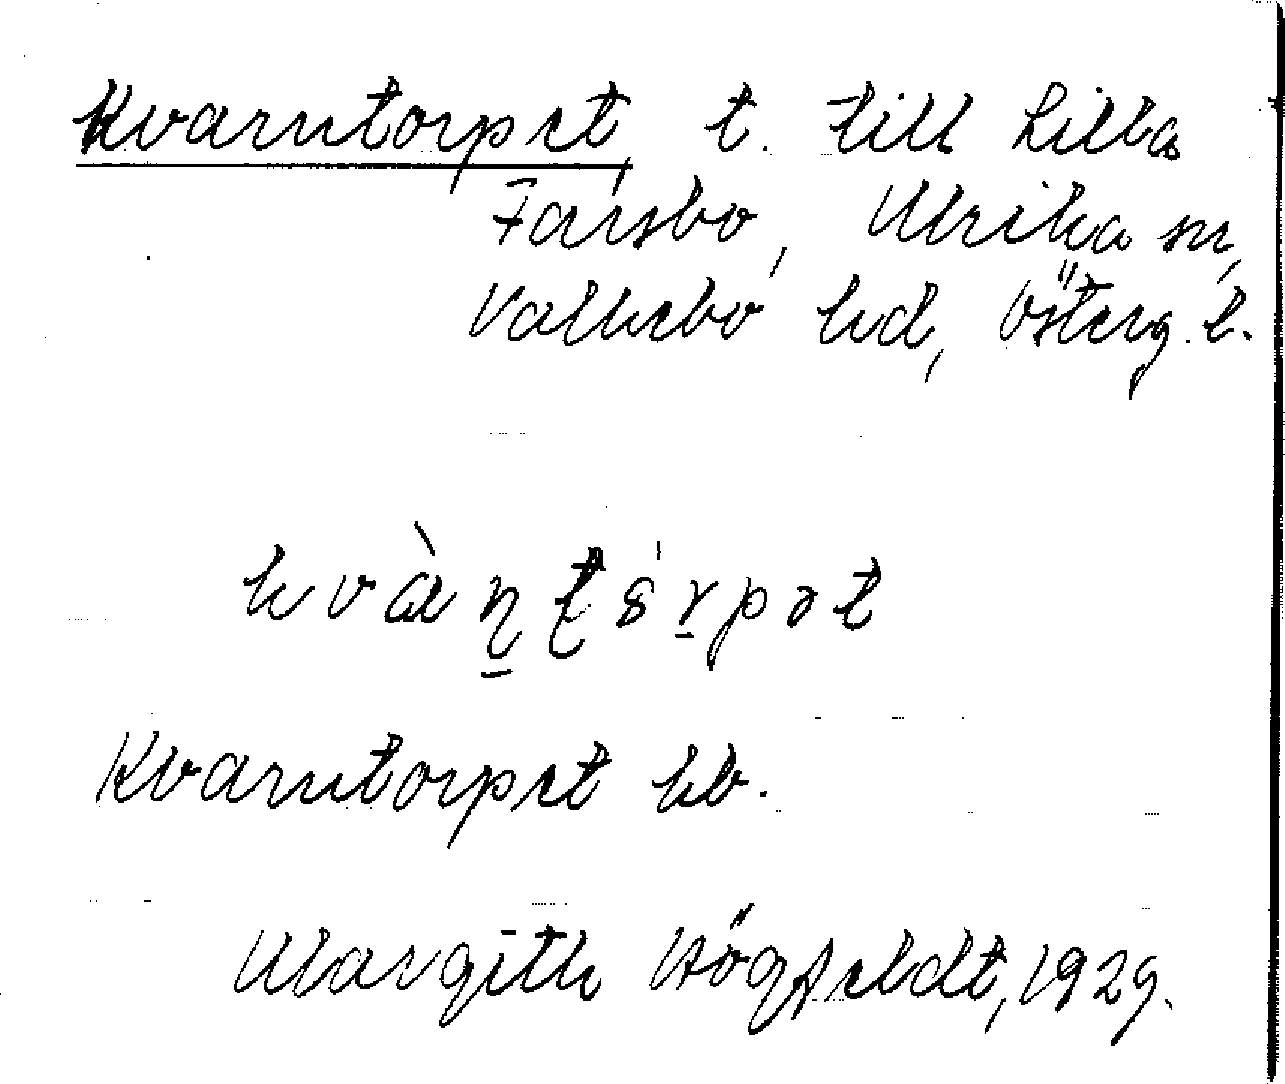 Kvarntorpet, t. till Lilla
Farsbo, Ulrika sn,
Valkebo hd, Österg. l.
kvàn̠ʈɞ́r̠pət
Kvarntorpet kb.
Margith Högfeldt, 1929.